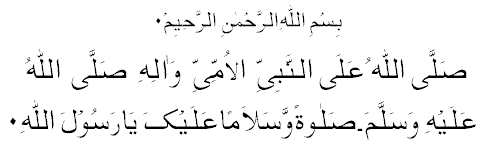 بِسْمِ اللّٰهِ الرَّحْمٰنِ الرَّحِیْمِ۰
صَلَّی اللّٰهُ عَلَی النَّبِیِّ الاُمِّیِّ وَاٰلِهٖ صَلَّی اللّٰهُ
عَلَیْهِ وَسَلَّمَ۔صَلٰوةً وَّسَلَامًا عَلَیْکَ یَارَسُوْلَ اللّٰهِ۰